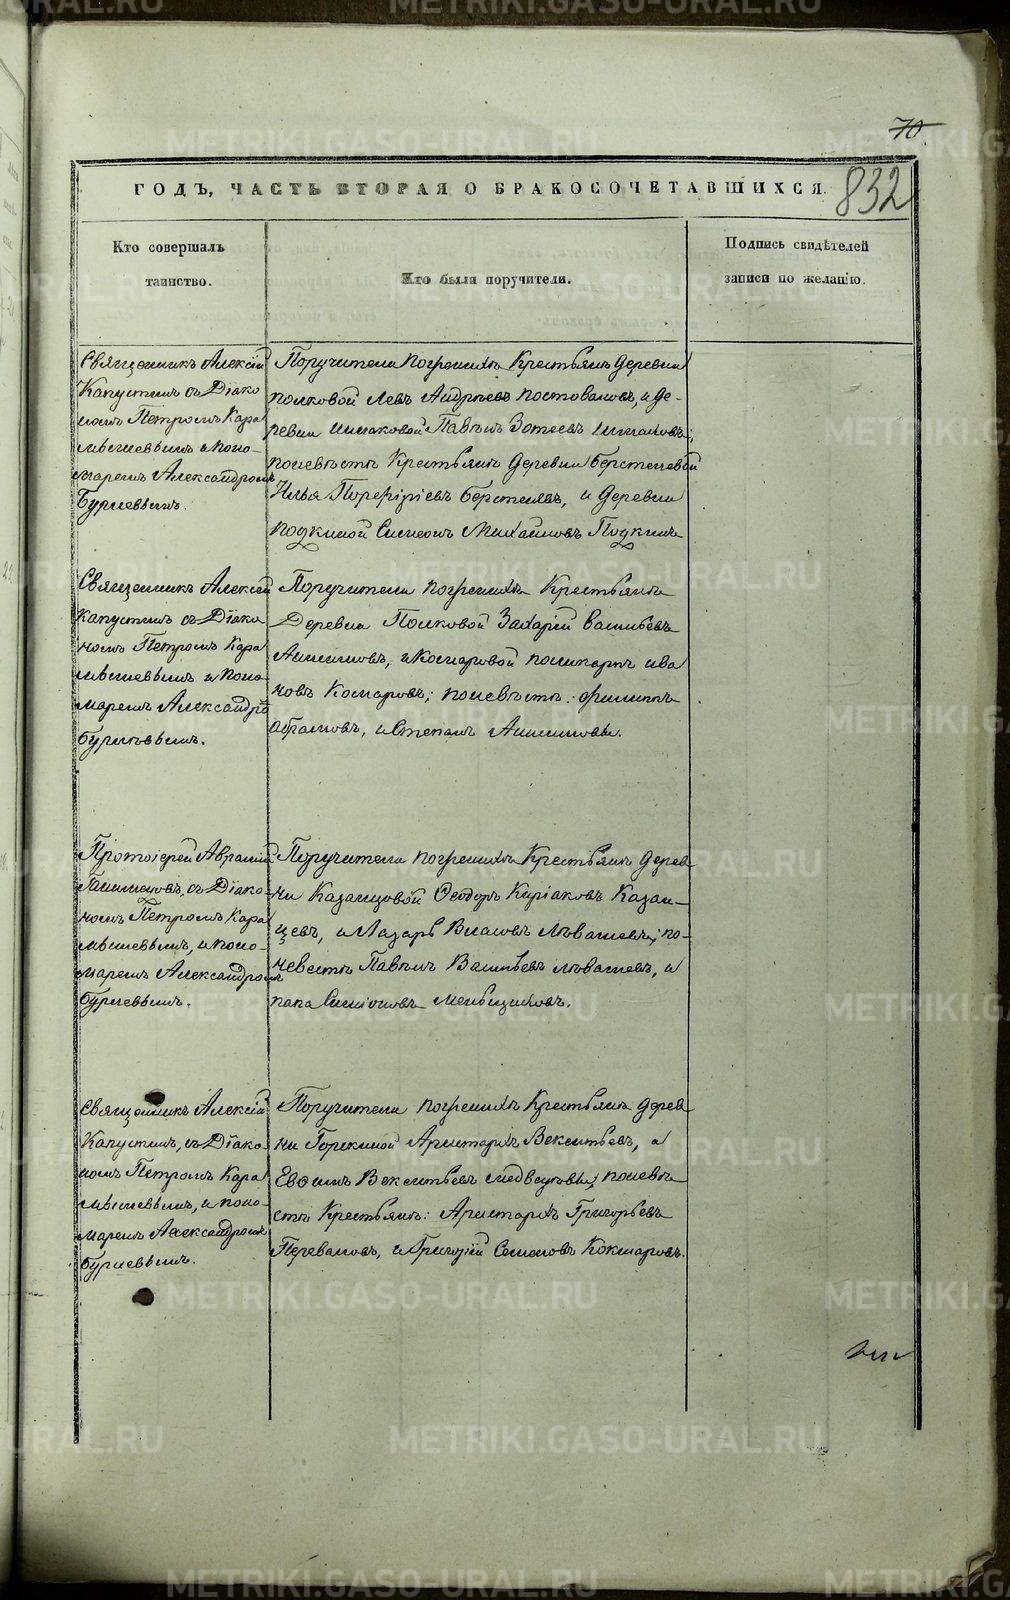 70.
ГОДЪ, ЧАСТЬ ВТОРАЯ О БРАКОСОЧЕТАВШИХСЯ.
832
Кто совершалъ
таинство.
Кто были поручители.
Подпись свидѣтелей
записи по желанію.
Священникъ Алексій
Капустинъ съ Діако
номъ Петромъ Кара
мышевымъ и поно-
маремъ Александромъ
Бурневымъ.
Поручители пожениxѣ Крестьянъ Деревни
полковой Левъ Андреевъ Постоваловъ, и де-
ревни Шмаковой Павелъ Зотеевъ Шмаковъ;
поневѣстѣ Крестьянъ Деревни Берстеневой
Илья Порфиріевъ Берстеневъ, и Деревни
Подкиной Симеонъ Михаиловъ Подкинъ
Священникъ Алексій
Капустинъ съ Діако
номъ Петромъ Кара
мышевымъ и поно
маремъ Александро
Бурневымъ.
Поручители поженихѣ Крестьяне
Деревни Полковой Захарій Васильевъ
Анисимовъ, и Комаровой поликарпъ ива
новъ Комаровъ; поневѣстѣ: филипъ
абрамовъ, и Степанъ Анисимовы.
Протоіерей Аврамій
съ Діако-
номъ Петромъ Кара
мышевымъ, и поно-
маремъ Александромъ
бурневымъ.
Поручители поженихѣ Крестьянъ дерев
ни Казанцовой Ѳеодоръ Киріаковъ Казан-
цевъ, и Лазарь Власовъ Ловашевъ; по-
невестѣ Павелъ Васильевъ ловашевъ, и
папа Симіоновъ меньщиковъ.
Священникъ Алексій
Капустинъ, съ Діако
номъ Петромъ Кара
мышевымъ, и поно-
маремъ Александромъ
бурневымъ.
Поручители поженихѣ Крестьянъ дерев
ни Горскиной Аристархъ Векентьевъ, и
Евѳимъ Векентьевъ медвѣдевы; поневѣ
стѣ Крестьянъ: Аристархъ Григорьевъ
Переваловъ, и Григорій Семеновъ Кокшаровъ.
METRIKI.GASO-URAL.RU